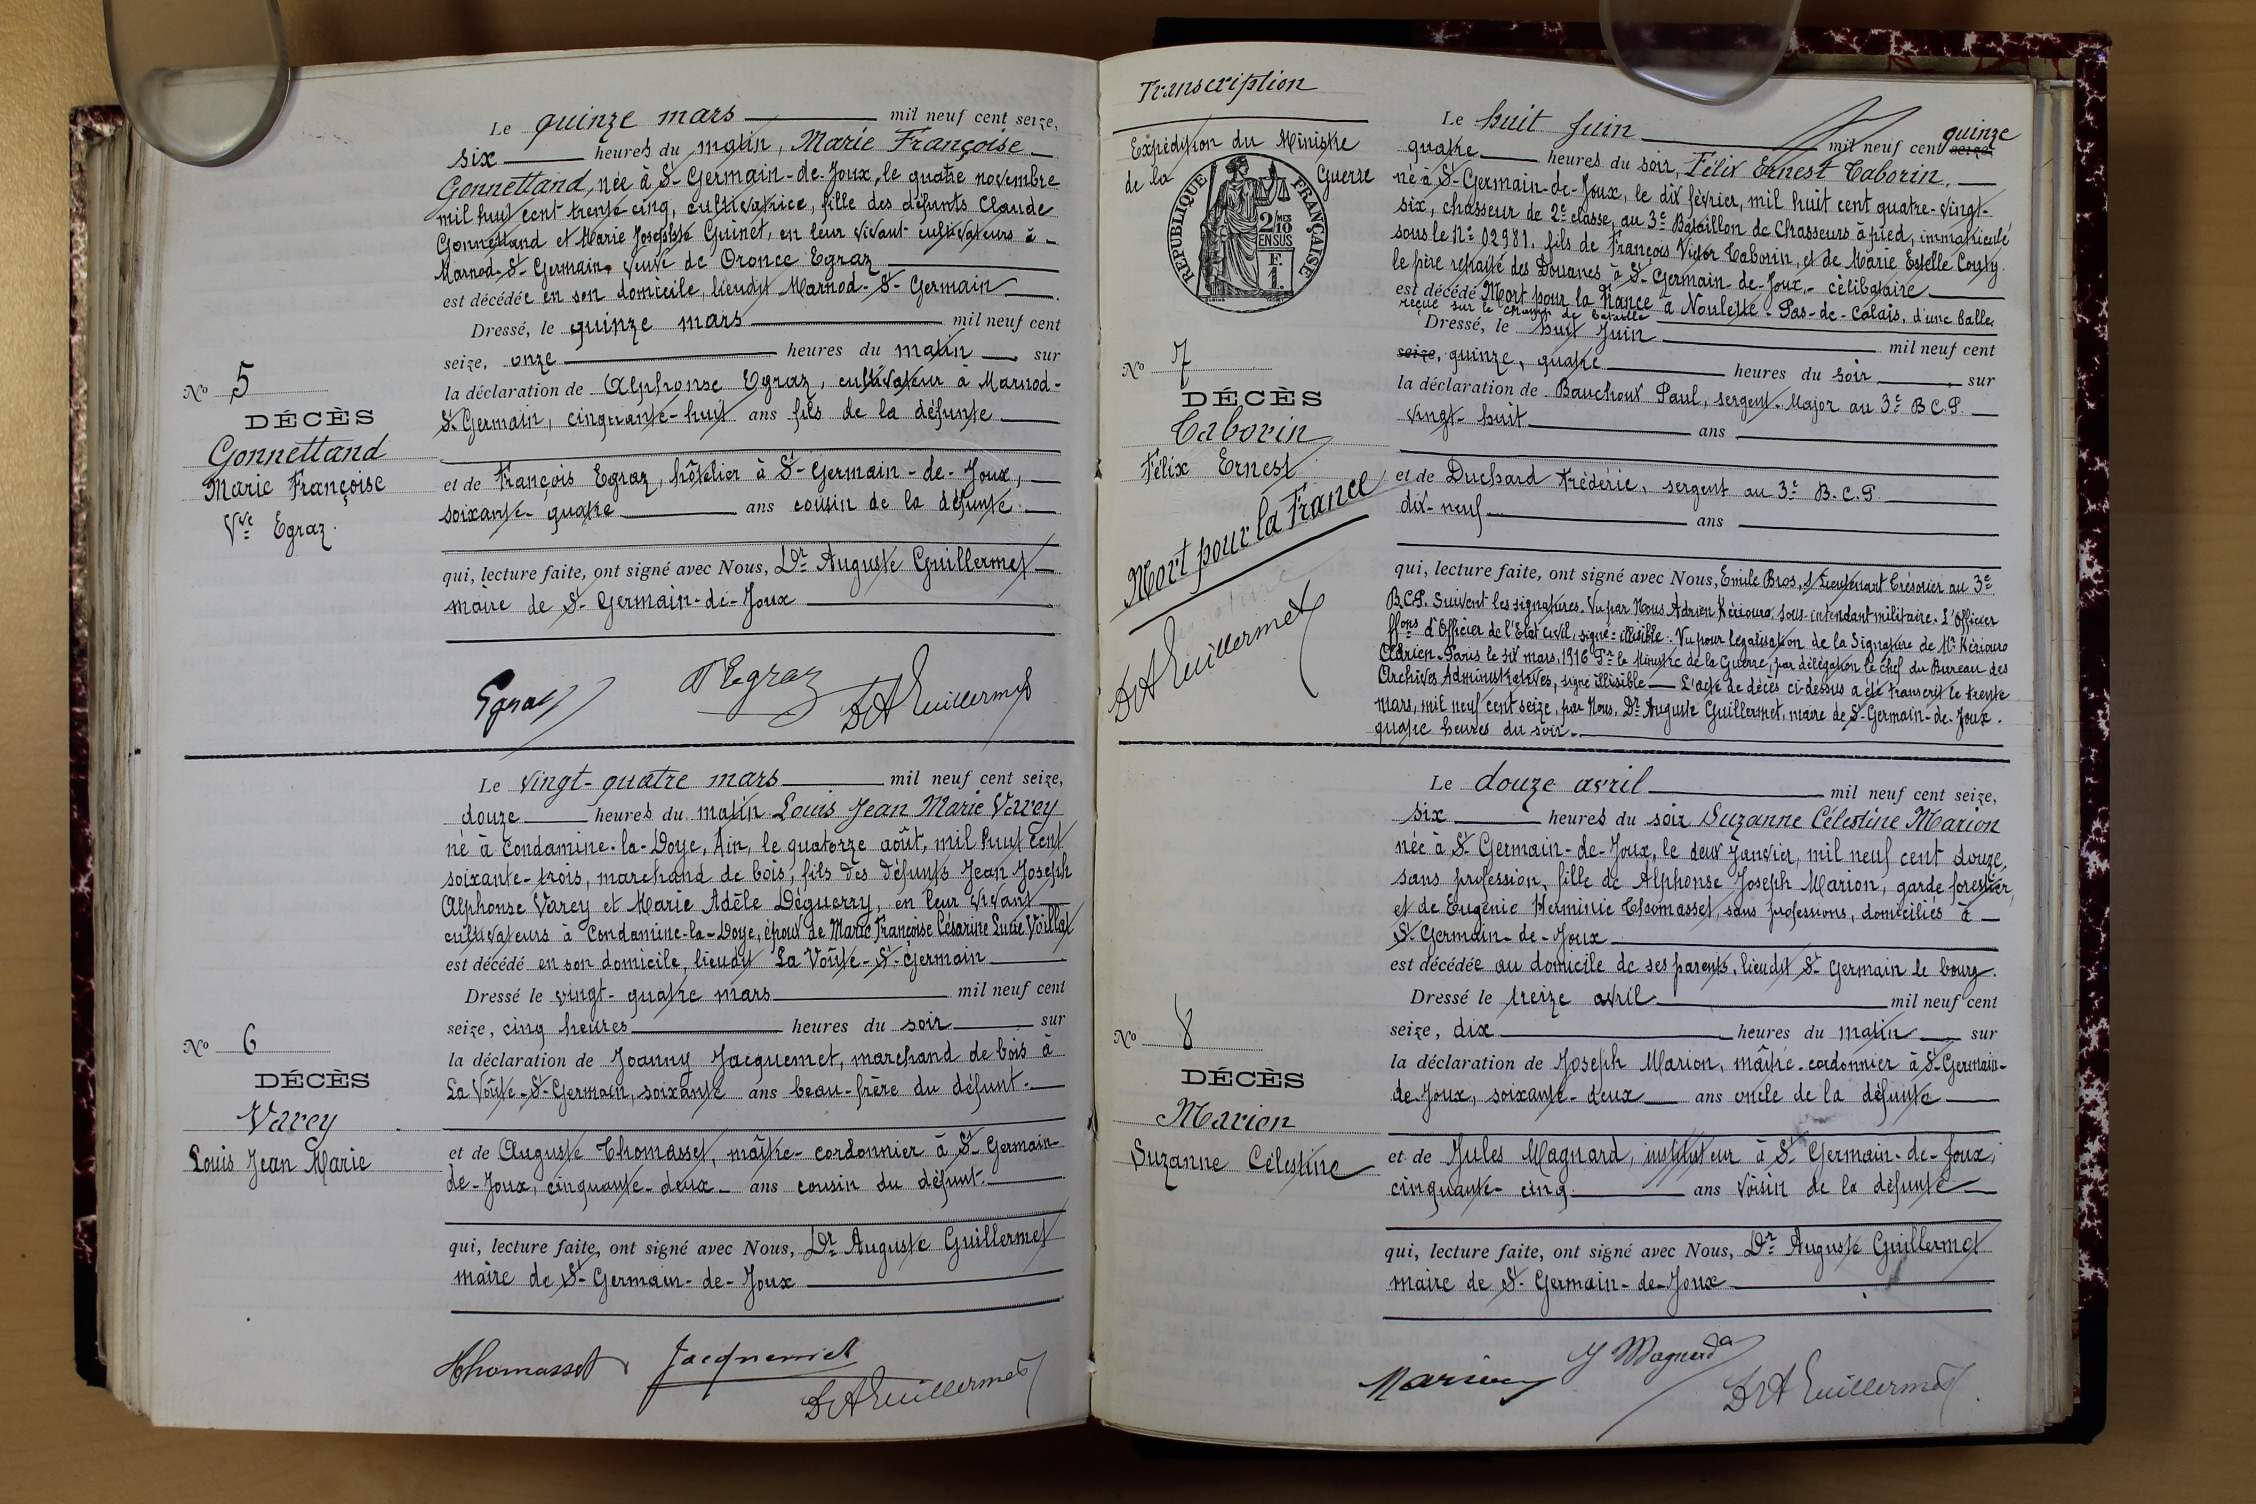 Le quinze mars mil neuf cent seize,
six heures du matin, Marie Françoise
Gonnettand, née à St-Germain-de-Joux, le quatre novembre
mil huit cent trente cinq, cultivatrice, fille des défunts Claude
Gonnettand et Marie Josephte Guinet, en leur vivant cultivateurs à
Marnod-St-Germain, veuve de Oronce Egraz
est décédée en son domicile, lieudit Marnod-St-Germain
Dressé, le quinze mars mil neuf cent
seize, onze heures du matin sur
la déclaration de Alphonse Egraz, cultivateur à Marnod-
St-Germain, cinquante-huit ans fils de la défunte
et de François Egraz, hôtelier à St-Germain-de-Joux,
soixante-quatre ans cousin de la défunte.
qui, lecture faite, ont signé avec Nous, Dr Auguste Guillermet
maire de St-Germain-de-Joux
Egraz F Egraz Dr A Guillermet
No 5
DÉCÈS
Gonnettand
Marie Françoise
Vve Egraz.
Le vingt-quatre mars mil neuf cent seize,
douze heures du matin Louis Jean Marie Varey
né à Condamine-la-Doye, Ain, le quatorze août, mil huit cent
soixante-trois, marchand de bois, fils des défunts Jean Joseph
Alphonse Varey et Marie Adèle Déguerry, en leur vivant
cultivateurs à Condamine-la-Doye, époux de Marie Françoise Césarine Lucie Voillat
est décédé en son domicile, lieudit La Voûte-St-Germain
Dressé le vingt-quatre mars mil neuf cent
seize, cinq heures heures du soir sur
la déclaration de Joanny Jacquemet, marchand de bois à
La Voûte-St-Germain, soixante ans beau-frère du défunt.
et de Auguste Thomasset, maître-cordonnier à St-Germain-
de-Joux, cinquante-deux ans cousin du défunt.
qui, lecture faite, ont signé avec Nous, Dr Auguste Guillermet
maire de St-Germain-de-Joux
Thomasset Jacquemet Dr A Guillermet
No 6
DÉCÈS
Varey
Louis Jean Marie
Transcription
Expédition du Ministre
de la Guerre
RÉPUBLIQUE FRANÇAISE
2/10 MES
EN SUS
F.
1.
No 7
DÉCÈS
Taborin
Félix Ernest
Mort pour la France
Dr A Guillermet
Le huit Juin mil neuf cent seize quinze
quatre heures du soir, Félix Ernest Taborin,
né à St-Germain-de-Joux, le dix février, mil huit cent quatre-vingt-
six, chasseur de 2e classe, au 3e Bataillon de Chasseurs à pied, immatriculé
sous le No 02981, fils de François Victor Taborin, et de Marie Estelle Couty
le père retraité des Douanes à St-Germain-de-Joux, - célibataire
est décédé Mort pour la France à Noulette - Pas-de-Calais, d'une balle
reçue sur le champ de bataille
Dressé, le huit Juin mil neuf cent
seize, quinze, quatre heures du soir sur
la déclaration de Bauchoux Paul, sergent-Major au 3e B C.P.
vingt-huit ans
et de Duchard Frédéric, sergent au 3e B.C.P.
dix-neuf ans
qui, lecture faite, ont signé avec Nous, Emile Bros, s/Lieutenant Trésorier au 3e
B.C.P. Suivent les signatures. Vu par Nous Adrien Kériouro, sous-intendant militaire. L'Officier
ffons d'Officier de l'État civil, signé = illisible. Vu pour légalisation de la Signature de Mr Kériouro
Adrien. Paris le six mars, 1916 Pr le Ministre de la Guerre, par délégation le chef du Bureau des
Archives Administratives, signé illisible L'acte de décès ci-dessus a été transcrit le trente
mars, mil neuf cent seize, par Nous, Dr Auguste Guillermet, maire de St-Germain-de-Joux.
quatre heures du soir.
Le douze avril mil neuf cent seize,
six heures du soir Suzanne Célestine Marion
née à St-Germain-de-Joux, le deux Janvier, mil neuf cent douze,
sans profession, fille de Alphonse Joseph Marion, garde forestier,
et de Eugénie Herminie Thomasset, sans professions, domiciliés à
St-Germain-de-Joux
est décédée au domicile de ses parents, lieudit St-Germain le bourg.
Dressé le treize avril mil neuf cent
seize, dix heures du matin sur
la déclaration de Joseph Marion, maître-cordonnier à St-Germain-
de-Joux, soixante-deux ans oncle de la défunte
et de Jules Magnard, instituteur à St-Germain-de-Joux,
cinquante-cinq ans voisin de la défunte
qui, lecture faite, ont signé avec Nous, Dr Auguste Guillermet
maire de St-Germain-de-Joux
Marion J Magnard Dr A Guillermet
No 8
DÉCÈS
Marion
Suzanne Célestine